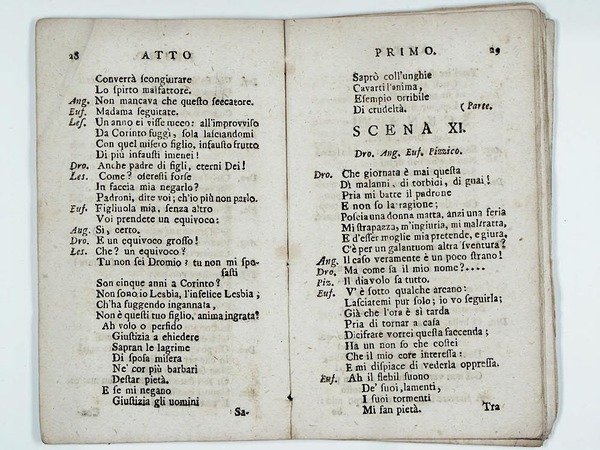 28 ATTO
Converrà ſcongiurare
Lo ſpirto malfattore.
Ang. Non mancava che queſto ſeccatore.
Euf. Madama ſeguitate.
Leſ. Un anno ei viſſe meco: all'improvviſo
Da Corinto fuggì, ſola laſciandomi
Con quel miſero figlio, infauſto frutto
Di più infauſti imenei!
Dro. Anche padre di figli, eterni Dei!
Les. Come? oſereſti forſe
In faccia mia negarlo?
Padroni, dite voi; ch'io più non parlo.
Euf. Figliuola mia, ſenza altro
Voi prendete un equivoco:
Ang. Sì, certo.
Dro. E un equivoco groſſo!
Les. Che? un equivoco?
Tu non ſei Dromio? tu non mi ſpo-
ſaſti
Son cinque anni a Corinto?
Non ſono io Lesbia, l'infelice Lesbia,
Ch'ha fuggendo ingannata,
Non è queſti tuo figlio, anima ingrata?
Ah volo o perfido
Giuſtizia a chiedere
Sapran le lagrime
Di ſpoſa miſera
Ne' cor più barbari
Deſtar pietà.
E ſe mi negano
Giuſtizia gli uomini
Sa-
PRIMO. 29
Saprò coll'unghie
Cavarti l'anima,
Eſempio orribile
Di crudeltà. (Parte.
SCENA XI.
Dro. Ang. Euf. Pizzico.
Dro. Che giornata è mai queſta
Di malanni, di torbidi, di guai!
Pria mi batte il padrone
E non ſo la ragione;
Poſcia una donna matta, anzi una feria
Mi ſtrapazza, m'ingiuria, mi maltratta,
E d'eſſer moglie mia pretende, e giura.
C'è per un galantuom altra ſventura?
Ang. Il caso veramente è un poco ſtrano!
Dro. Ma come ſa il mio nome?....
Piz. Il diavolo ſa tutto.
Euf. V' è ſotto qualche arcano:
Laſciatemi pur ſolo; io vo ſeguirla;
Già che l'ora è sì tarda
Pria di tornar a caſa
Dicifrate vorrei queſta faccenda;
Ha un non ſo che coſtei
Che il mio core intereſſa:
E mi diſpiace di vederla oppreſſa.
Euf. Ah il flebil ſuono
De' ſuoi, lamenti,
I ſuoi tormenti
Mi fan pietà.
Tra